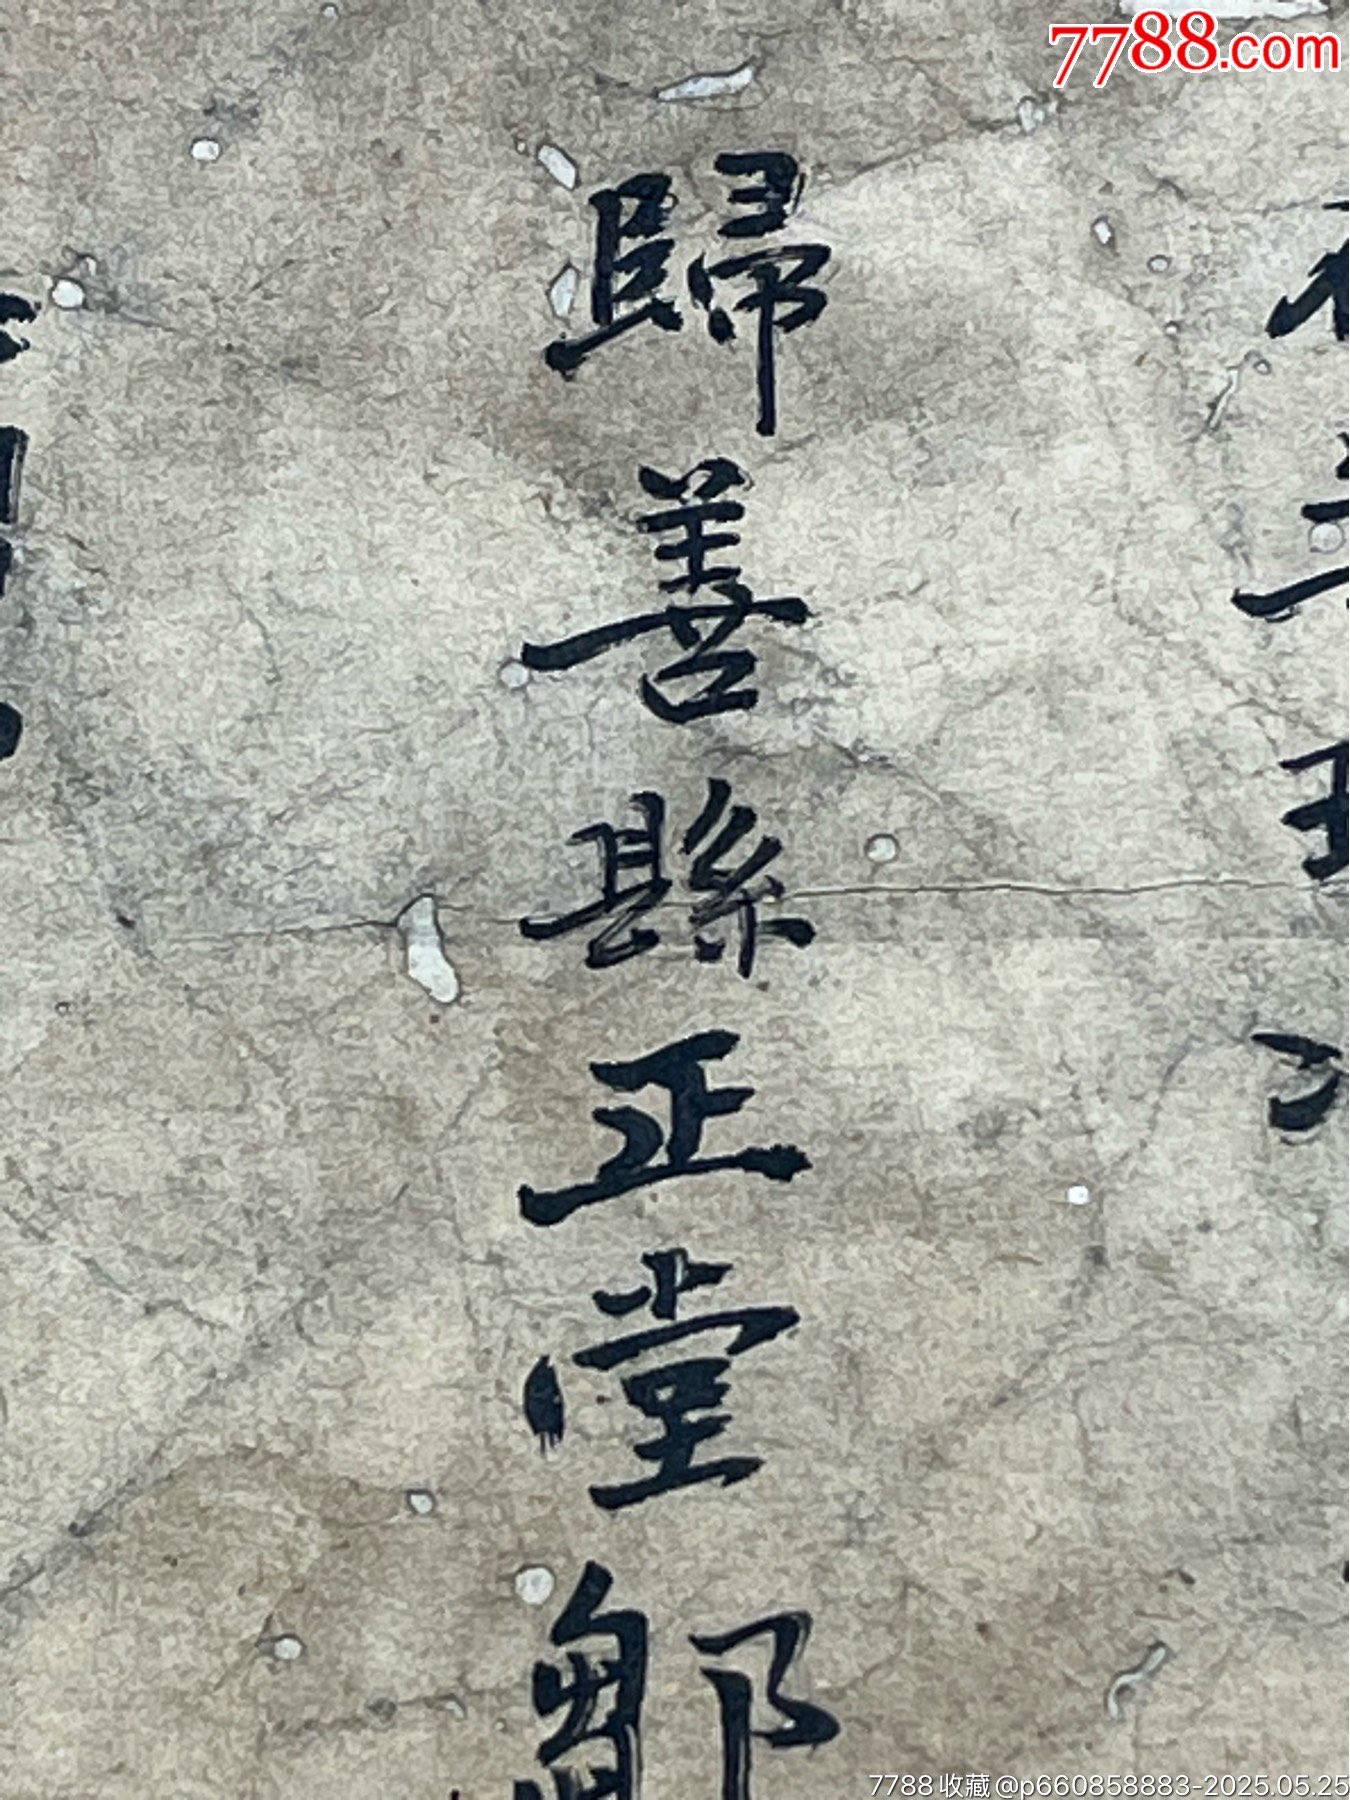 7788.com
歸善縣正堂鄭
7788收藏@p660858883-2025.05.25